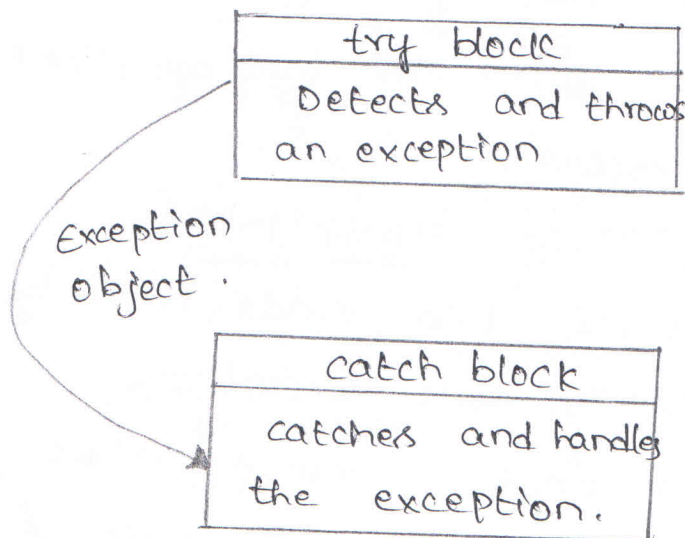 try block
Detects and throws
an exception
Exception
object.
catch block
catches and handles
the exception.